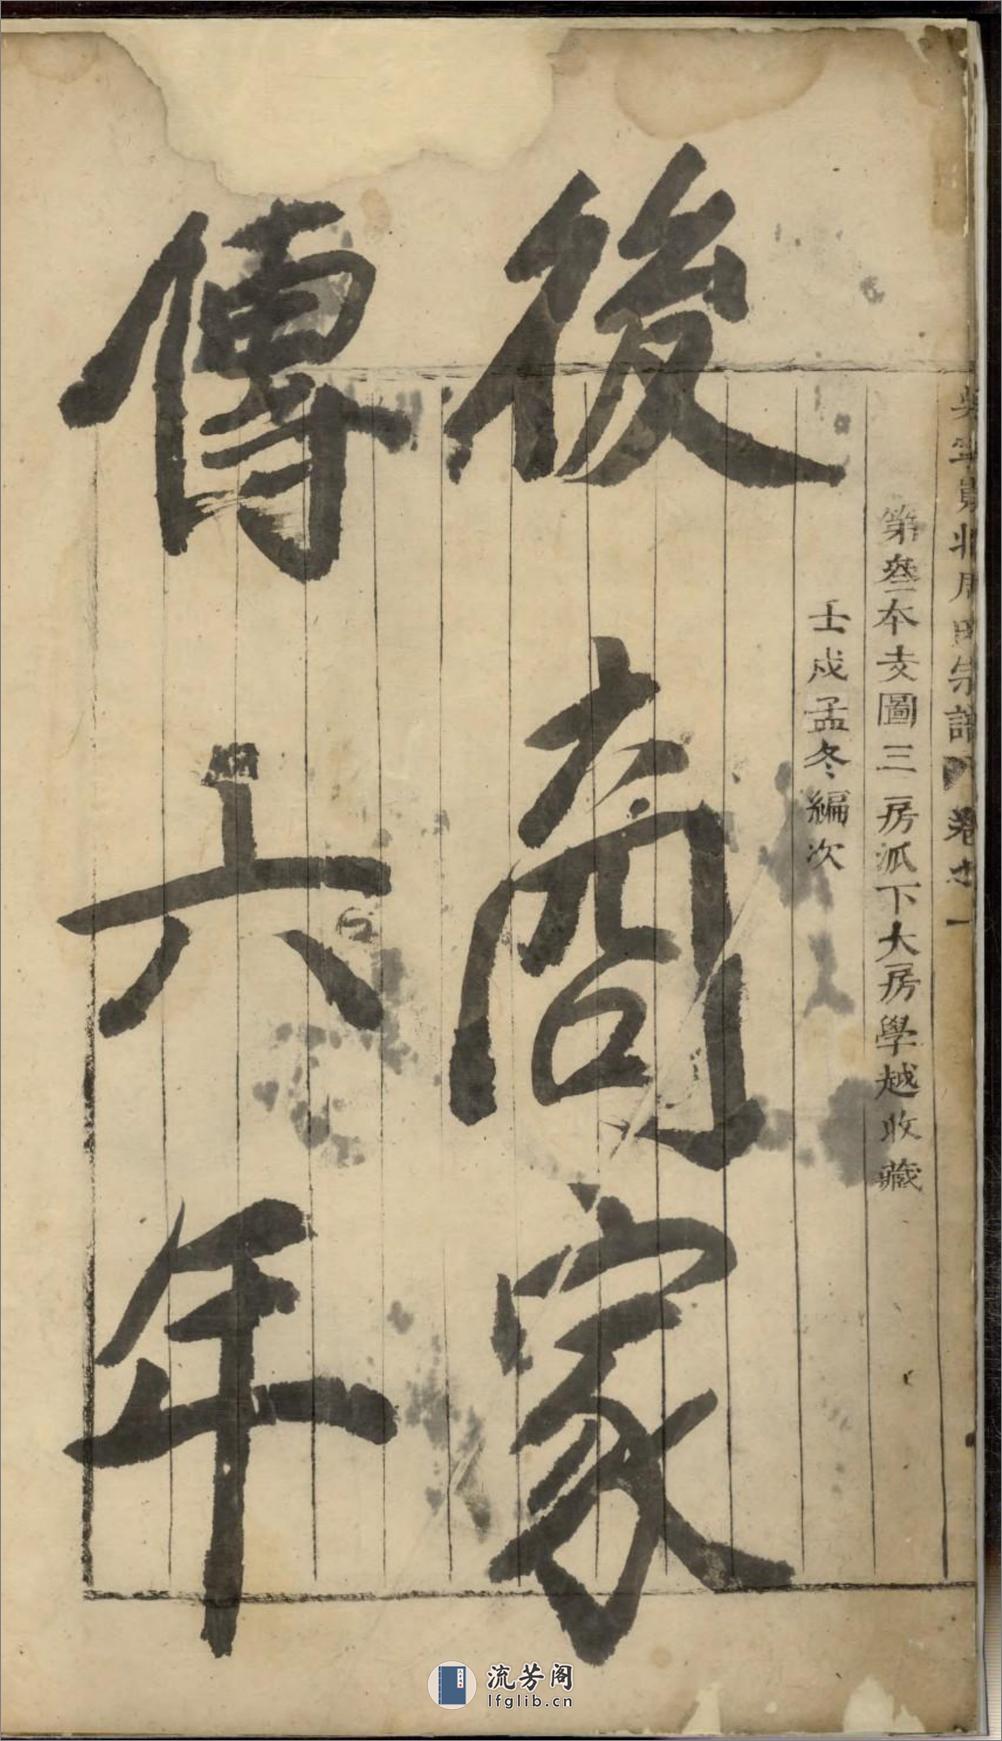 周氏宗譜 卷之一
第叁本支圖三房派下大房學越收藏
壬戌孟冬編次
後商家
傳六年
流芳阁
lfglib.cn